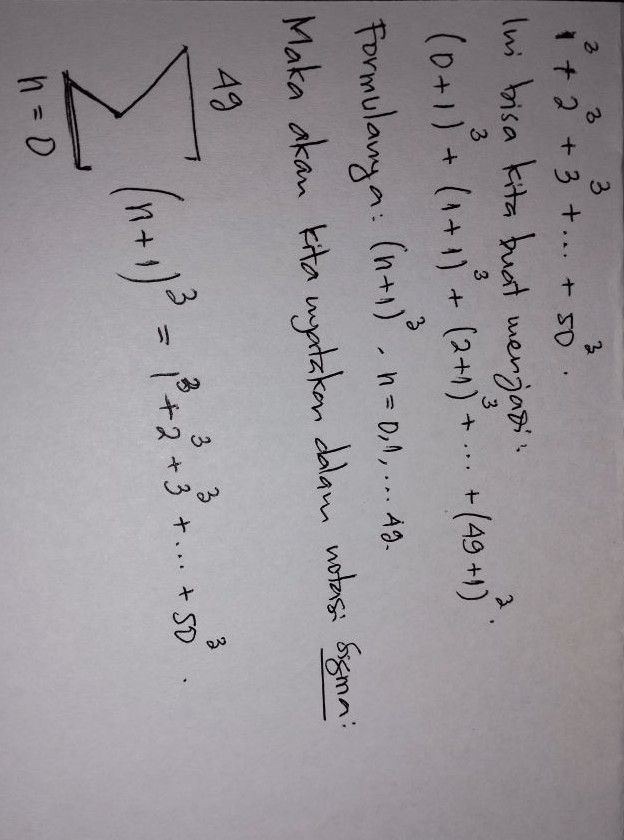 1³ + 2³ + 3³ + ... + 50³.
Ini bisa kita buat menjadi:
(0+1)³ + (1+1)³ + (2+1)³ + ... + (49+1)³.
Formulanya: (n+1)³ . n = 0,1,... 49.
Maka akan kita nyatakan dalam notasi sigma:
49
∑ (n+1)³ = 1³ + 2³ + 3³ + ... + 50³.
n = 0